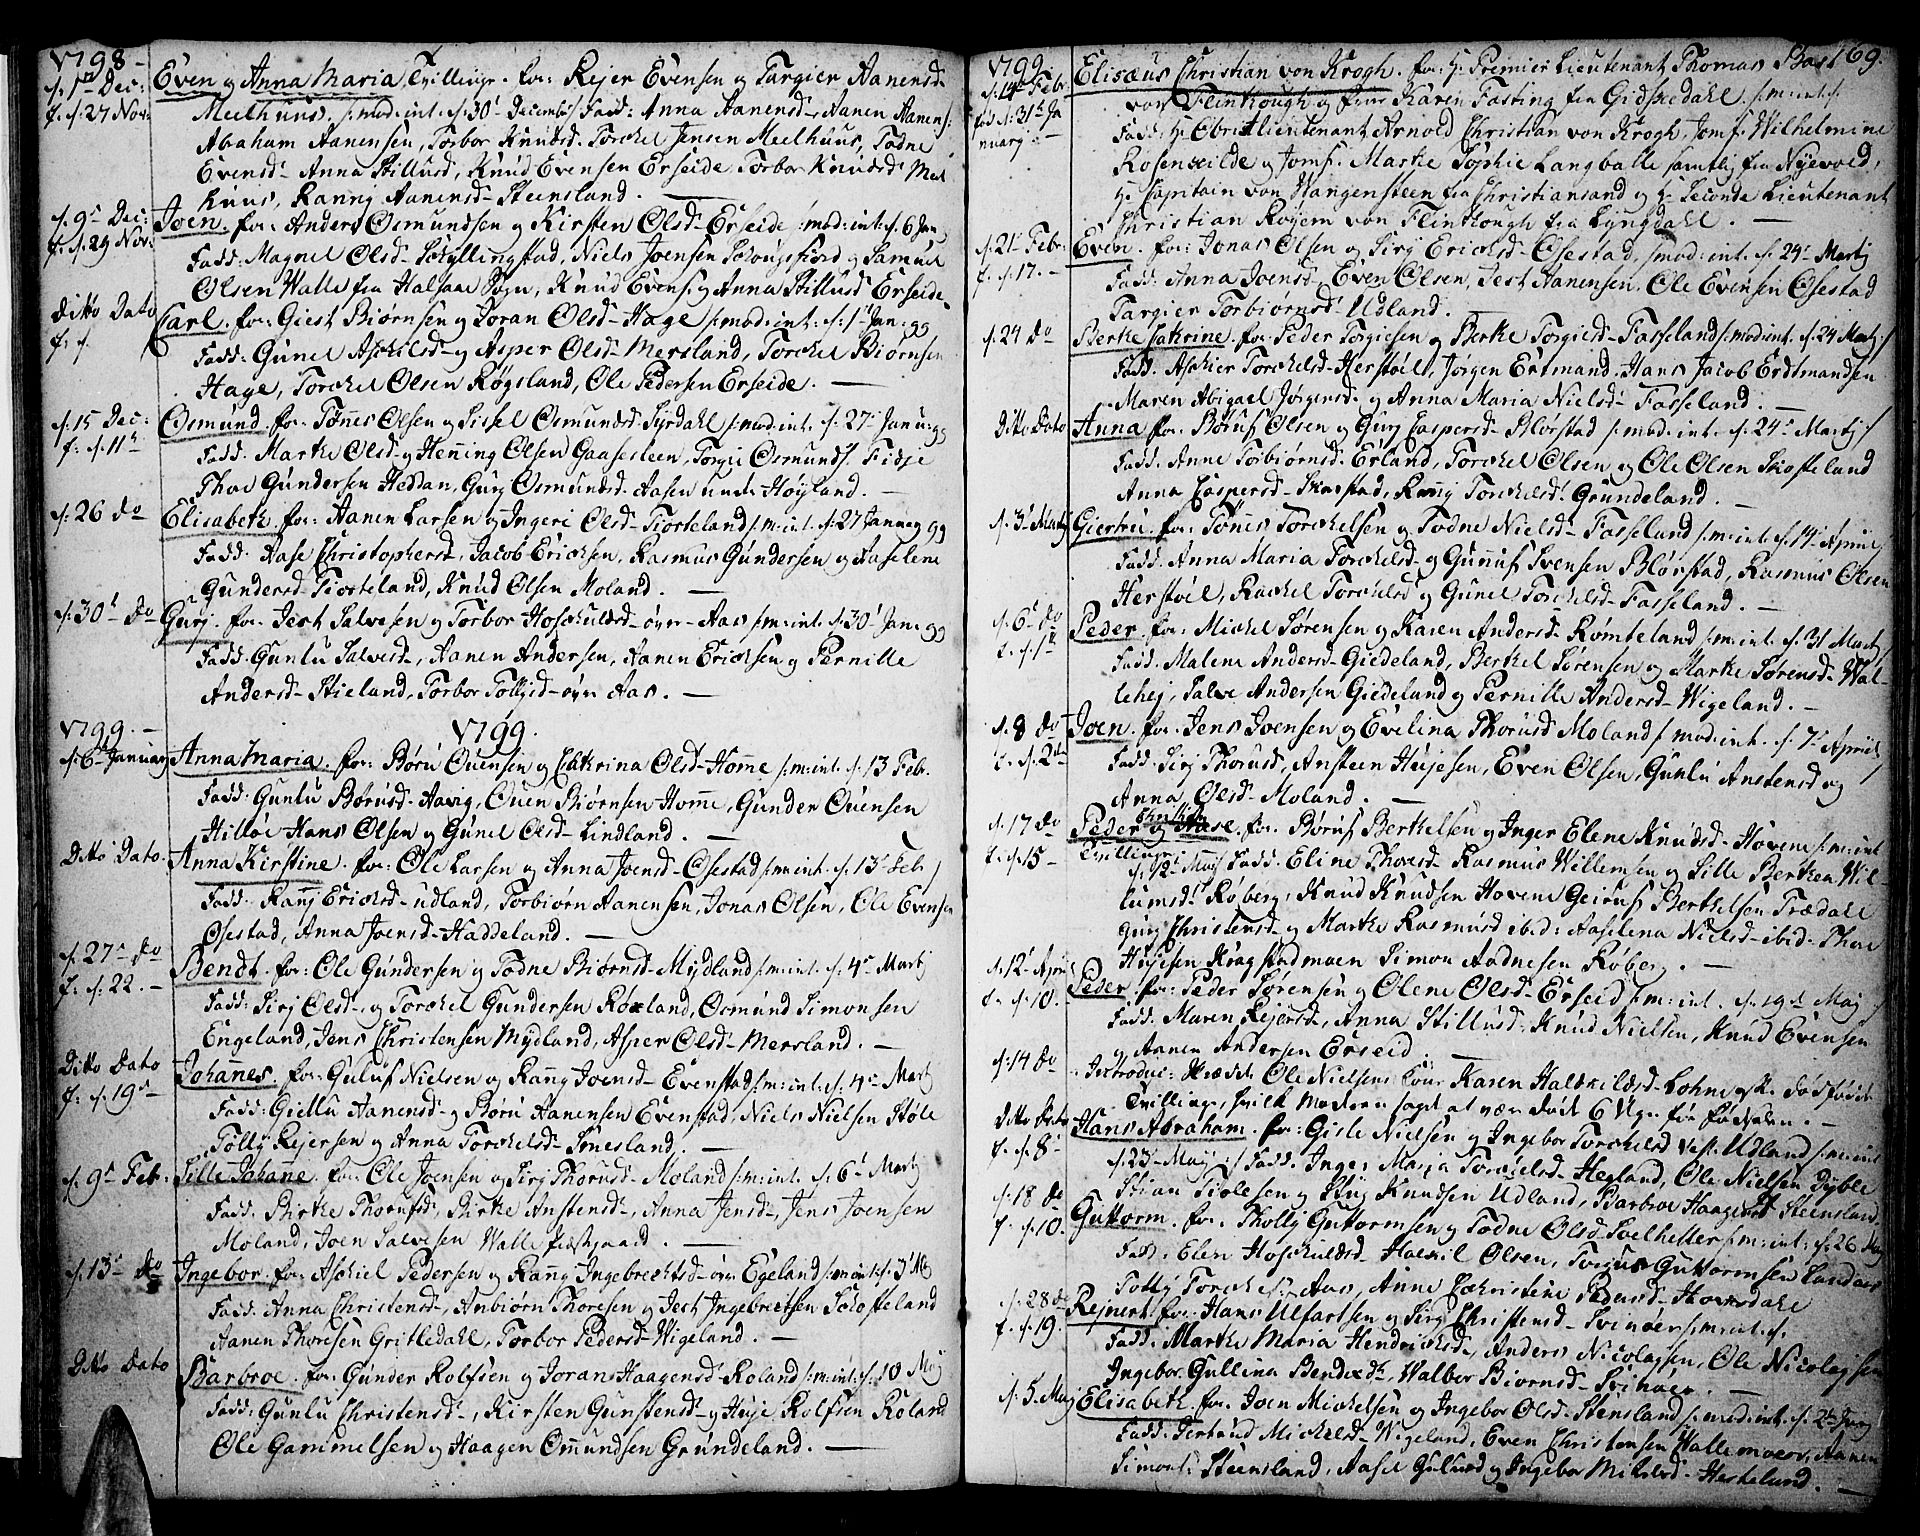 1798.
d: 1ste Dec: Even og Anna Maria, Tvillinger. for: Rejer Evensen og Targier Aanensd-
f. d. 27 Nov: Meelhuus. /:mod: int: d. 30t Decemb:/ Fadd: Anna Aanensd- Aanen Aanens:
Abraham Aanensen, Torbor Knudsd. Torckel Jensen Meelhuus, Todne
Evensd- Anna Stillusd, Knud Evensen Erseide Torbor Knudsd Meel
huus, Ranni Aanensd- Steensland. —
d. 9t Dec: Joen. for: Anders Osmundsen og Kirsten Olsd- Erseide /:mod: int: d. 6 Jan.
f. d. 29 Nov: Fadd: Magnel Olsd- Schyllingstad, Niels Joensen Schougsfiord og Samuel
Olsen Walle fra Halsaae Sogn, Knud Evens. og Anna Stillusd Erseide
Ditto Dato Carl. for: Giest Biørnsen og Joran Olsd- Hage /:mod: int: d. 1t Jan: 99
f. d. Fadd: Gunel Aschilsd- og Asper Olsd- Mersland, Torckel Biørnsen
Hage, Torckel Olsen Røgsland, Ole Pedersen Erseide. —
d. 15 Dec: Osmund. for: Tønnes Olsen og Sissel Osmundsd- Syrdahl /:mod: int. d. 27t Janu: 99
f: d. 11te Fadd: Marthe Olsd- og Henning Olsen Gaasesteen, Torgiu Osmunds. Fidje
Thor Gundersen Heddan, Gurj Osmundsd- Aasen under Høyland. —
d: 26 do Elisabeth. for: Aanen Larsen og Ingeri Olsd- Tiorteland /:m: int: d. 27 Januarij 99
Fadd: Aase Christophersd-, Jacob Erichsen, Rasmus Gundersen og Aaselene
Gundersd- Tiorteland, Knud Olsen Moland. —
d. 30t do Gurj. for: Jest Salvesen og Torbor Hoschuldsd- øvre- Aas /:m: int: d. 30t Jan: 99
Fadd: Gunlu Salvesd-, Aanen Andersen, Aanen Erichsen og Pernille
Andersd- Stieland, Torbor Tollisd- øvre Aas. —
1799. — 1799.
d. 6t Januarj Anna Maria. for: Børu Ouensen og Cathrina Olsd- Homme /:m: int. d. 13 Feb.
Fadd: Gunlu Børusd- Aavig, Ouen Biørnsen Homme, Gunder Ouensen
Hilløe Hans Olsen og Gunel Olsd- Lindland. —
Ditto Dato. Anna Kirstine. for: Ole Larsen og Anna Joensd- Osestad /:m: int. d. 13t Feb:/
Fadd: Rannj Ericksd- udland, Torbiørn Aanensen, Jonas Olsen, Ole Evensen
Osestad, Anna Joensd- Haddeland. —
d. 27t do Bendt. for: Ole Gundersen og Todne Biørnsd- Mydland /:m: int. d. 4t Martj
f. d: 22. — Fadd: Sirj Olsd-, og Torckel Gundersen Røsland, Osmund Simonsen
Engeland, Jens Christensen Mydland, Asper Olsd- Mersland. —
Ditto Dato Johannes. for: Guluf Nielsen og Rannj Joensd- Evenstad /:m: int: d. 4t Martj
f: d. 19t Fadd: Giellu Aanensd- og Børu Aanensen Evenstad, Niels Nielsen Støle
Tolly Rejersen og Anna Torckelsd- Imesland. —
d. 9t Feb: Sille Johanne. for: Ole Joensen og Sirj Thorusd- Moland /:m: int: d. 6t Martj
Fadd. Birthe Thorufsd: Birthe Anstensd-, Anna Jensd-, Jens Joensen
Moland, Joen Salvesen Walle Præstegaard. —
d. 13t do Ingebor. for: Aschiel Pedersen og Rannj Ingebrecktsd- øvre Egeland /:m: int: d. 3t Mj
Fadd. Anna Christensd-, Anbiørn Thoresen og Jest Ingebretsen Schofteland
Aanen Thoresen Gritledahl, Torbor Pedersd- Wigeland. —
Ditto Dato Barbroe. for: Gunder Rolfsen og Joran Haagensd- Roland /:m: int: d. 10 Maj
Fadd: Gunlu Christensd-, Kirsten Gunstensd- og Huje Rolfsen Roland
Ole Gammelsen og Haagen Ommundsen Grundeland. —
1799. 169.
d. 14t Febr. Elisæus Christian von Krogh. for: H: Premier Lieutenant Thomas
fød d. 31t Ja von Flinthough og Frue Karen Fasting fra Gidskedahl. /:m: int: d.
nuarj — Fadd. H: Obristlieutenant Arnold Christian von Krogh, Jomf. Wilhelmine
Rosenkilde og Jomf. Marthe Sophie Langballe samtlig fra Nyevold,
H: Captain von Wangensteen fra Christiansand og H- Seconde Lieutenant
Christian Rojem von Flinthough fra Lyngdahl. —
d. 21t Febr: Even. for: Jonas Olsen og Sirj Ericksd- Osestad, /:mod: int. d. 24t Martj
f. d. 17. — Fadd: Anna Joensd- Even Olsen, Jest Aanensen, Ole Evensen Osestad
Targier Torbiørnsd- Udland. —
d. 24 do Berthe Cathrine. for: Peder Torgiesen og Berthe Torgiesd- Fasseland /:mod int. d. 24 Martj:/
Fadd. Aschier Torckelsd- Herstøel, Jørgen Ertmand, Hans Jacob Erdtmandsen
Maren Abigael Jørgensd- og Anna Maria Nielsd- Fasseland. —
Ditto Dato Anna for: Børuf Olsen og Gurj Caspersd- Blørstad /:mod: int. d. 24t Martj:/
Fadd. Anne Torbiørnsd- Erland, Torckel Olsen og Ole Olsen Skofteland
Anna Caspersd- Skarstad, Rannj Torckelsd: Grundeland. —
d. 3t Martj Giertru. for: Tønnes Torckelsen og Todne Nielsd- Fasseland /:m: int. d. 14t Aprill:/
Fadd. Anna Maria Torckelsd- og Gunnuf Svensen Blørstad, Rasmus Olsen
Herstøel, Rachel Torckelsd og Gunel Torckelsd- Fasseland. —
d. 6t do Peder. for: Mickel Sørensen og Karen Andersd- Romteland /:m: int. d. 31 Martj:/
f. d. 1te Fadd. Malene Andersd- Giedeland, Berthel Sørensen og Marthe Sørensd- Wal-
lehej, Salve Andersen Giedeland og Pernille Andersd- Wigeland. —
d. 8 do Joen. for: Jens Joensen og Evelina Thorusd Moland /:mod: int. d. 7t Apriil:/
f. d. 2de Fadd: Sirj Thorusd, Ansteen Hujesen, Even Olsen, Gunlu Anstensd og
Anna Olsd- Moland. —
d. 17 do Peder og Aase. for. Børuf Berthelsen og Inger Elene Knudsd- Hoven /:m: int
f. d. 15 Tvillinger d. 12t Maj Fadd. Eline Thoresd- Rasmus Willemsen og Sille Berthea Wil-
lumsd: Røberg, Knud Knudsen Hoven Geiruf Berthelsen Trædahl
Gurj Christensd- og Marthe Rasmusd ibid: Aaselena Nielsd- ibid. Thor
Hujesen Kragstadmoen Simon Aadnesen Røberg. —
d. 12t April Peder. for: Peder Sørensen og Olene Olsd- Erseid /:m: int. d. 19d Maj:/
f. d. 10. Fadd. Maren Rejersd-, Anna Stillusd: Knud Nielsen, Knud Evensen
og Aanen Andersen Erseid —
d: 14 do Introduc: Ole Nielsens Kone Karen Halvkildsd- Lohne efter dødfødde
Tvillinger, hvilke Moderen sagde at være døde 6 Uger før Fødselen. —
Ditto Dato Hans Abraham. for: Gisle Nielsen og Ingebor Torckelsd Vest Udland /:m: int
f. d. 8t d. 23t Maj:/ Fadd. Inger Marja Torckelsd- Hegland, Ole Nielsen Dyble
Stian Tiolesen og Stig Knudsen Udland, Barbroe Haagensd Steensland.
d. 18 do Guttorm. for: Tholly Guttormsen og Todne Olsd- Soelhetter /:m: int: d. 26 Maj
f. d. 10. Fadd: Elen Hoschuldsd- Halvil Olsen, Torgus Guttormsen Landaas
Tolly Torckels: Aas, Anne Cathristine Pedersd- Hovsdahl
d. 28 do Rejnert for: Hans Ulfartsen og Sirj Christensd- Svinøer /:m: int. d.
f. d. 19. Fadd. Marthe Maria Hendricksd, Anders Nicolajsen, Ole Nicolajsen
Ingebor Gullina Bendixd-, Walbor Biørnsd- Svinøer. —
d. 5. Maj Elisabeth. for: Joen Mickelsen og Ingebor Olsd- Stensland /:mod: int. d. 2de Junj
Fadd. Giertrud Mickelsd- Wigeland, Even Christensen Wallemoen, Aanen
Simons: Steensland, Aasel Gulusd og Ingebor Mickelsd- Haskeland. —